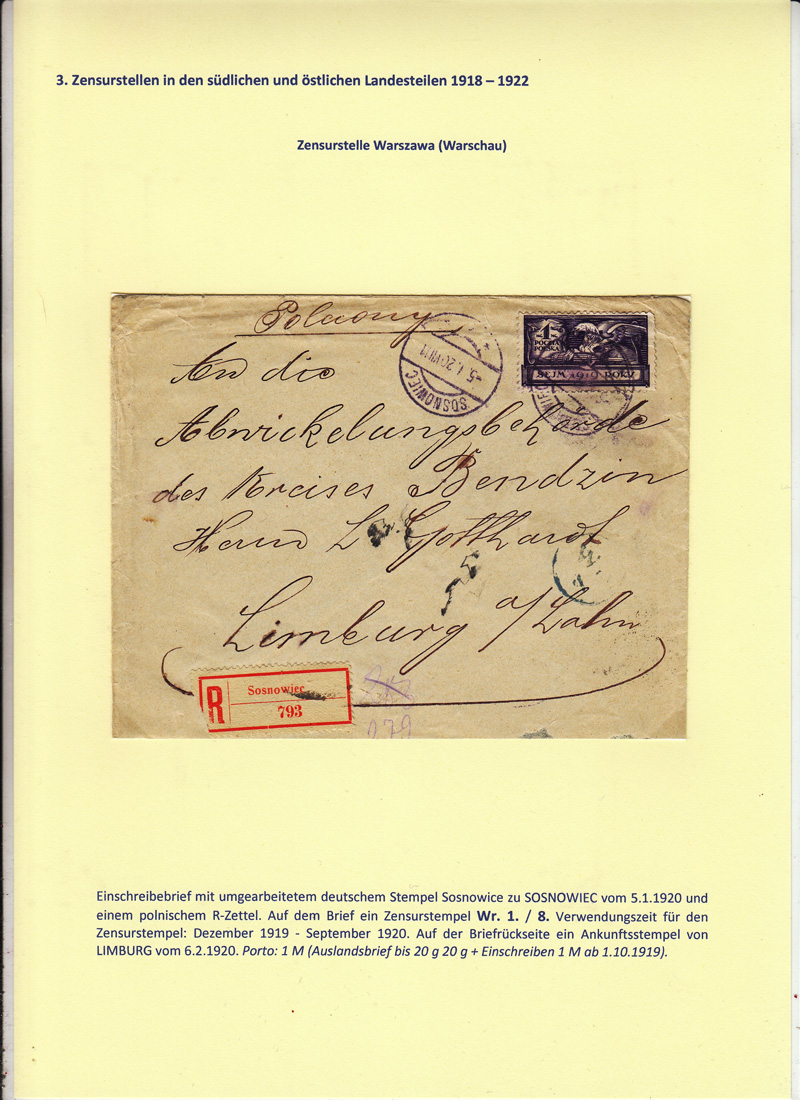 3. Zensurstellen in den südlichen und östlichen Landesteilen 1918 – 1922
Zensurstelle Warszawa (Warschau)
Polecony
An die
Abwickelungsbehörde
des Kreises Bendzin
Herrn L Gotthardt
Limburg a/Lahn
SOSNOWIEC
-5.1.20
1
POCZTA
POLSKA
SEJM 1919 ROKU
R
Sosnowiec
793
279
Einschreibebrief mit umgearbeitetem deutschem Stempel Sosnowice zu SOSNOWIEC vom 5.1.1920 und
einem polnischem R-Zettel. Auf dem Brief ein Zensurstempel Wr. 1. / 8. Verwendungszeit für den
Zensurstempel: Dezember 1919 - September 1920. Auf der Briefrückseite ein Ankunftsstempel von
LIMBURG vom 6.2.1920. Porto: 1 M (Auslandsbrief bis 20 g 20 g + Einschreiben 1 M ab 1.10.1919).